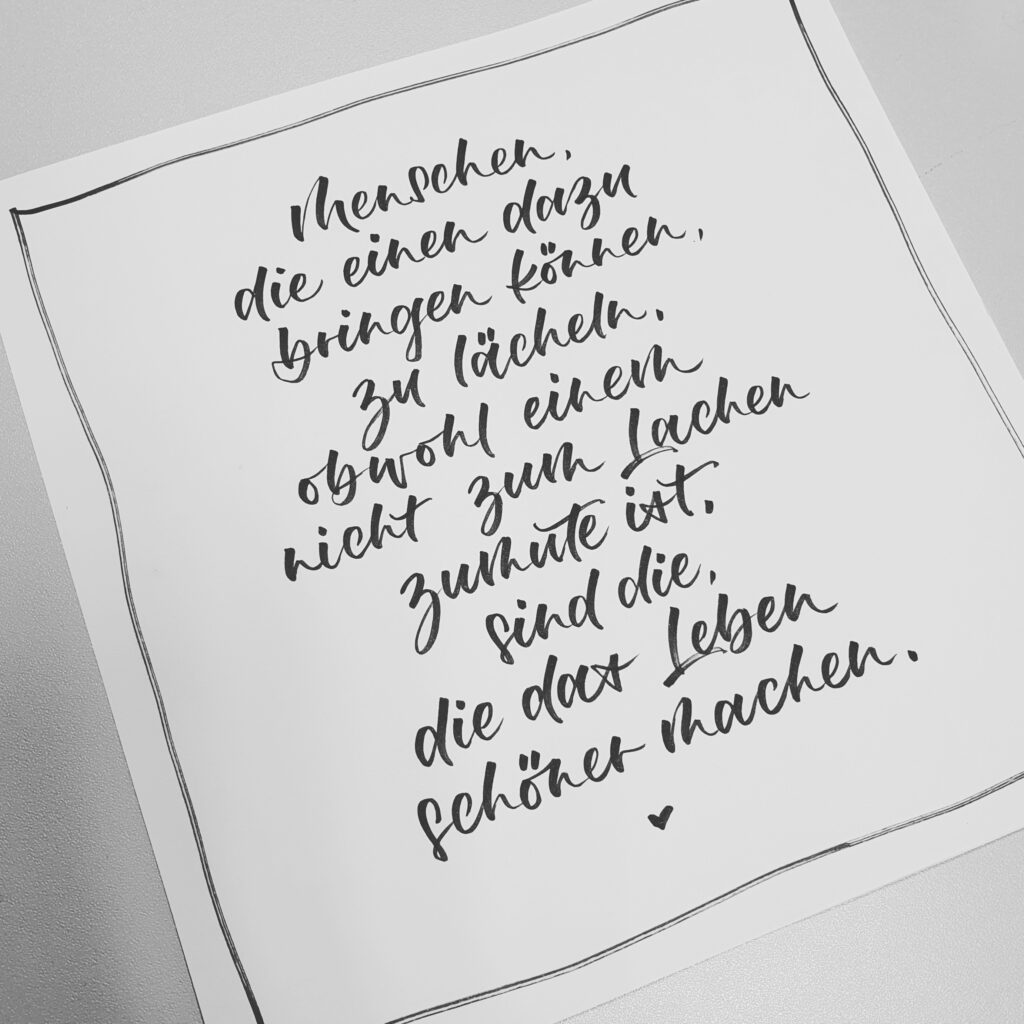 Menschen,
die einen dazu
bringen können,
zu lächeln,
obwohl einem
nicht zum Lachen
zumute ist,
sind die,
die das Leben
schöner machen.